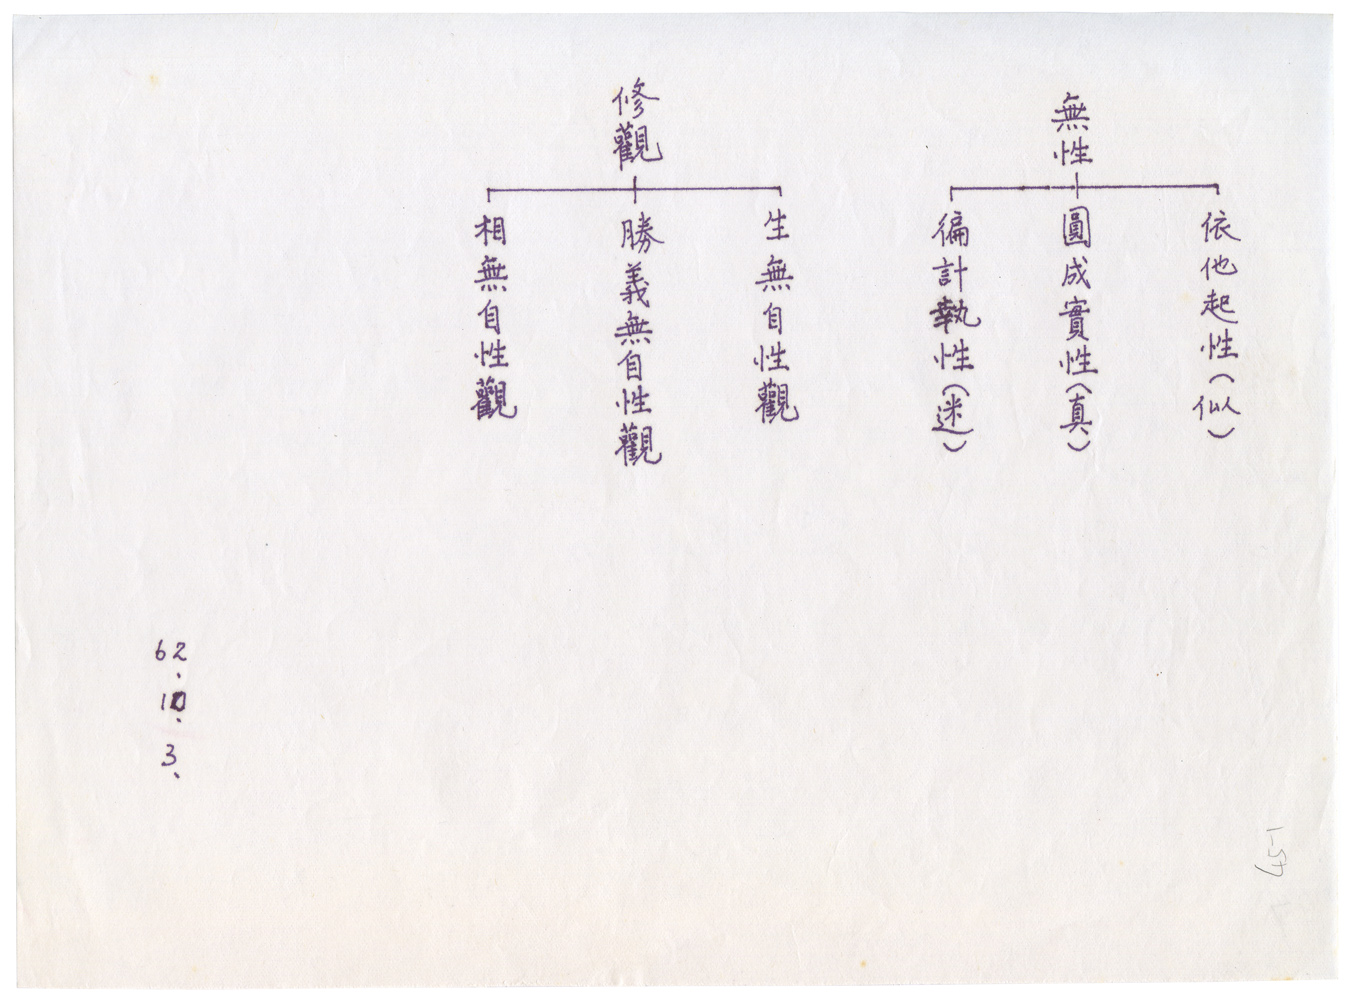 無性
依他起性（似）
圓成實性（真）
徧計執性（迷）
修觀
生無自性觀
勝義無自性觀
相無自性觀
62.
10.
3.
45